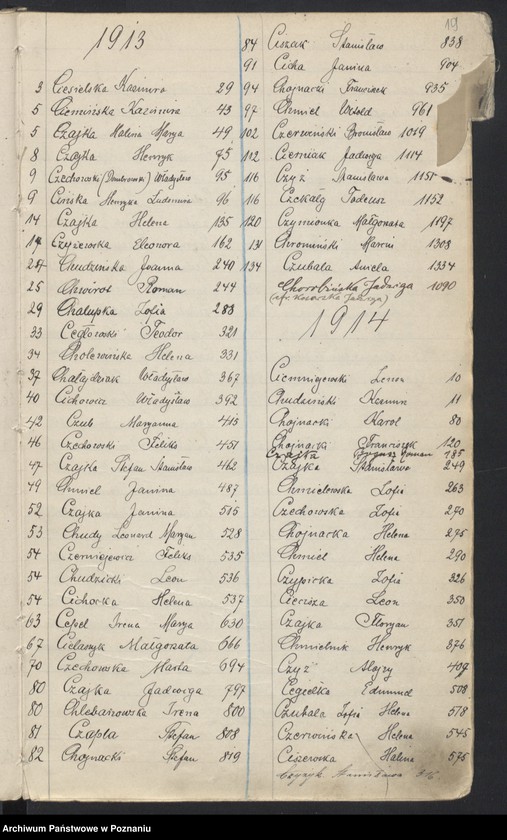 19
1913
3 Ciesielska Kazimira 29
5 Ciemińska Kazimira 43
5 Czajka Halena Marya 49
8 Czajka Henryk 75
9 Czechowski (Dombrowski) Władysław 95
9 Cińska Henryka Ludmira 96
14 Czajka Helene 135
Czyżewska Eleonora 162
Chudzińska Joanna 240
25 Chwirot Roman 244
29 Chałupka Zofia 283
33 Cegłowski Teodor 321
34 Cholewińska Helena 331
37 Władysław 367
40 Cichowicz Władysław 392
42 Czub Maryanna
46 Czechowski Feliks 451
47 Czajka Stefan Stanisław 462
49 Chmiel Janina 487
52 Czajka Janina 515
53 Chudy Leonard Maryan 528
54 Czerniejewicz Feliks 535
54 Chudzicki Leon 536
54 Cichocka Helena 537
63 Cepel Irena Marya 630
67 Cielaszyk Małgorzata 666
70 Czechowska Marta 694
80 Czajka Jadwiga 797
80 Chlebaszowska Irena 800
81 Czapla Stefan 808
82 Chojnacki Stefan 819
84 Ciszak Stanisław 838
91 Cicha Janina 904
94 Chojnacki Franciszek 935
97 Chmiel Witold 961
102 Czerwiński Bronisław 1019
112 Cierniak Jadwiga 1114
116 Czyż Stanisława 1151
116 Czekały Tadeusz 1152
120 Czynionka Małgorzata 1197
131 Chromiński Marcin 1308
134 Czubala Aniela 1334
Chorobińska Jadwiga 1090
1914
Ciemniejewski Zenon 10
Chudziński 11
Chojnacki Karol 80
Chojnacki Franciszek 120
Czajka Roman 185
Czajka Stanisława 249
Chmielewska Zofia 263
Czechowska Zofia 270
Chojnacka Helena 275
Chmiel Helena 290
Zofia 326
Ciecisza Leon 350
Czajka Floryan 351
Chmielnik Henryk 376
Czyż Alojzy 409
Cegiełka Edmund 508
Czubala Zofia Helena 578
Czerwińska Helena 545
Ciszewska Halina 575
Stanisława
Archiwum Państwowe w Poznaniu